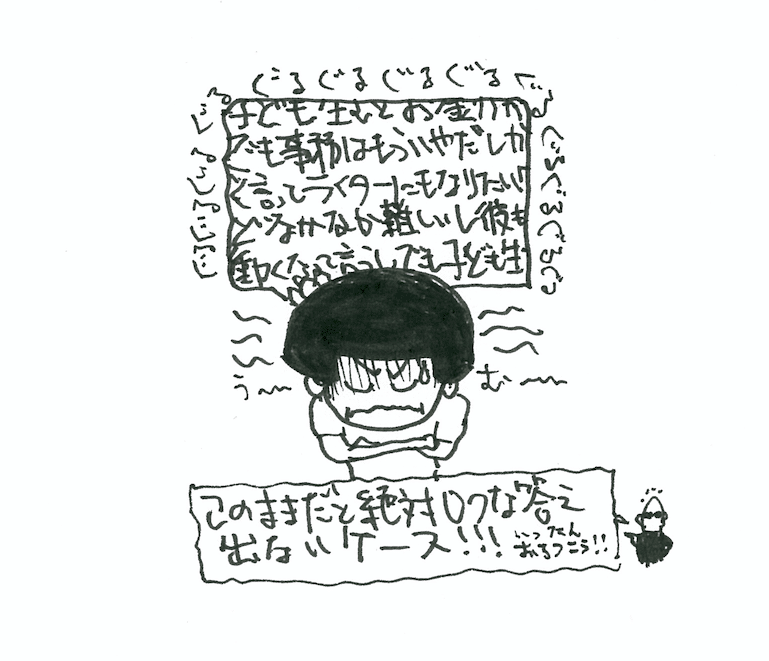 ぐるぐるぐるぐるぐる
ぐるぐるぐるぐる
子ども生むとお金かか
でも事務はもういやだしか
言ってつくターにもなりたい
どなかなか難しいし彼も
動くなって言うしでも子ども生
ぐるぐるぐるぐっ
う〜
む〜
このままだと絶対ロクな答え
出ないケース!!!
いったん
おちつこう!!